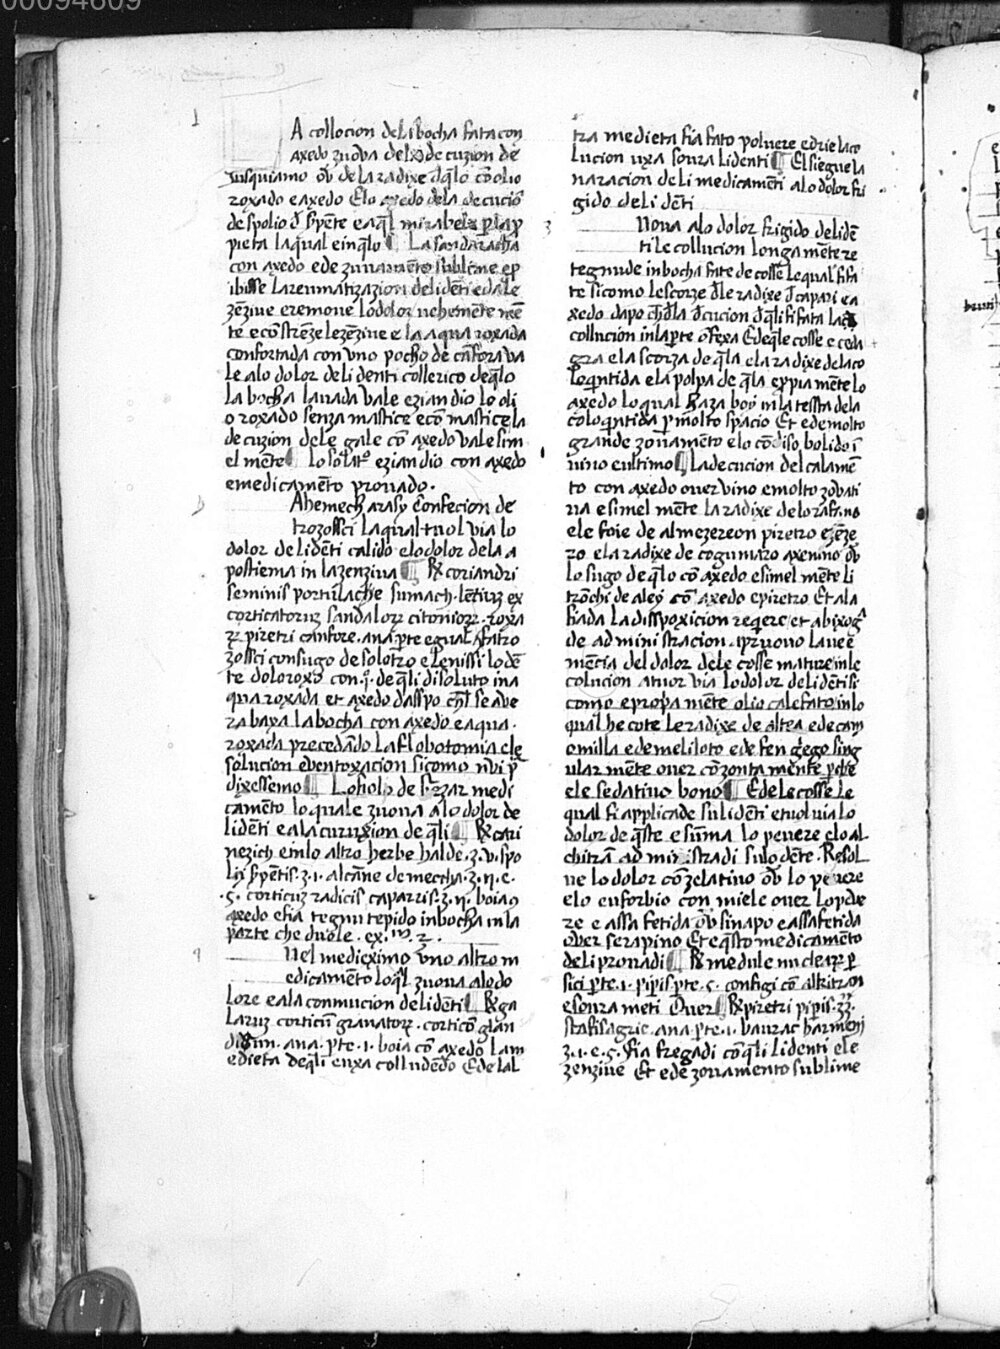 00094609
A collocion de la bocha fata con
axedo zuova del de cuzion de
iusquiamo oṽ de la radixe dq̃lo cõ olio
roxado e axedo Elo axedo dela decucio
de spolio d̃ sp̃ente e aq̃l mirabele p la p
pieta la qual e in q̃lo ¶ La sandaracha
con axedo ede zuvamẽto sublime e p
ibisse la reumatizazion de li dẽti e dale
zẽzive e remove lo dolor vehemẽte mẽ
te e cõstrẽze le zẽzive e la aqua roxada
confortada con uno pocho de cãfora va
le alo dolor de li denti collerico de q̃lo
la bocha lavada vale eziandio lo oli
o roxado senza mastice e cõ mastice la
decuzion dele gale cõ axedo vale sim
el mẽte ¶ Lo solatº eziandio con axedo
e medicamẽto provado.
Ahemech arasy Confecion de
trozossci la qual tuol via lo
dolor de li dẽti calido elo dolor dela a
postiema in la zenziva ¶ ℞ coriandri
seminis portulache sumach. lẽtiuȝ ex
corticatoruȝ sandaloꝝ citonioꝝ. roxa
ꝝ piretri canfore. ana pte egual sfatro
zossci con sugo de solatro e lenissi lo dẽ
te doloroxo con. q̃. de q̃li disoluto in a
qua roxada et axedo dasspo ch̃l se ave
ra baxa la bocha con axedo e aqua.
roxada precedãdo la flobotomia ele
solucion e ventoxacion sicomo nui p
dixessemo ¶ Lo folo de medi
camẽto lo quale zuova alo dolor de
li dẽti e ala curuxion de q̃li ¶ ℞ cari
nezich e in lo altro herbe halde. ȝ. v. spo
lij sp̃entis. ȝ. 1. alcãne de meccha. ȝ. ij. e.
.5. corticuȝ radicis caparris. ȝ. ij. boia ꝯ
axedo e fia tegnu tepido in bocha in la
parte che duole. ex. m̃. 2.
Nel mediximo uno altro m
edicamẽto loq̃l zuova alo do
lore e ala conmucion de li dẽti ¶ ℞ ga
laruȝ corticũ granatoꝝ. corticõ glan
diũm. ana. pte. 1. boia cõ axedo lam
edieta de q̃li e uxa colludẽdo E de lal
tra medieta fia fato polvere e drie la co
lucion uxa soura li denti ¶ El siegue la
naracion de li medicamẽti alo dolor fri
gido de li dẽti
Nova alo dolor frigido de li dẽ
ti le collucion longa mẽte re
tegnude in bocha fate de cosse le qual si fa
te sicomo le scorze d̃le radixe d̃ capari e a
xedo dapo ch̃ d̃la d̃cucion d̃q̃li si fata la
collucion in la pte ofexa E deq̃le cosse e ceda
gra e la scorza de q̃la e la radixe de la co
loq̃ntida e la polpa de q̃la e ppia mẽte lo
axedo lo qual haza boy in la tessta dela
coloq̃ntida p molto spacio Et ede molto
grande zovamẽto elo cõdiso bolido ĩ
vino e ultimo ¶ La decucion del calamẽ
to con axedo over vino e molto zovati
va e simel mẽte la radixe de lo rafano
ele foie de almezereon piretro e zẽze
ro e la radixe de cogumaro axenino oṽ
lo sugo de q̃lo cõ axedo e simel mẽte li
trõchi de aley cõ axedo e piretro Et ala
fiada la dissposicion reqere et abixogª
de ad ministracion. ip nuovo la vee
mẽcia del dolor dele cosse mature in le
colucion a tuor via lo dolor de li dẽti si
como e ppa mẽte olio calefato in lo
qual he cote le radixe de altea e de cam
omilla e de meliloto e de fen g̃ego sing
ular mẽte over cõzonta mẽnte pche
ele sedativo bono ¶ E de le cosse le
qual si applicade su li dẽti e tuol via lo
dolor de q̃ste e sũma lo pevere elo al
chitrã ad ministradi sulo dẽte. Resol
ve lo dolor cõzelativo oṽ lo pevere
elo euforbio con miele over lo pev
re e assa fetida oṽ sinapo e assa fetida
over serapino Et e q̃sto medicamẽto
de li provadi ¶ ℞ medule nucleaꝝ p
sici pte. 1. pipis. pte. 5. configi cõ alkitran
e soura meti Over ¶ ℞ piretri pipis. ȝȝ.
stafisagrie. ana. pte. 1. baurac harmeni
ȝ. 1. e. 5. fia fregadi cõ q̃li li denti e le
zenzive Et ede zovamento sublime